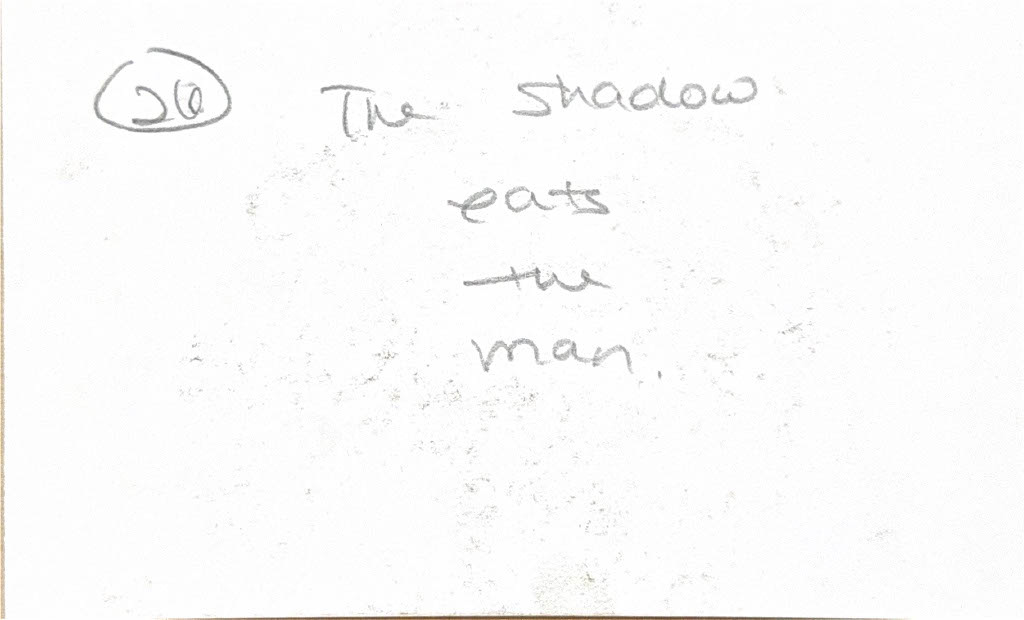 26 The shadow
eats
the
man.